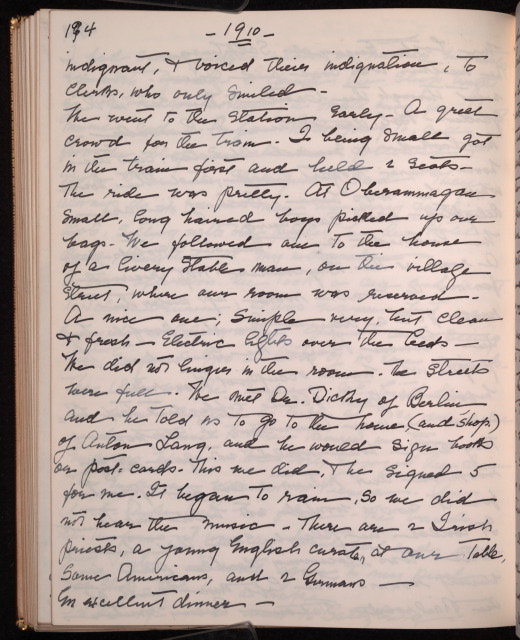 194 - 1910 -
indignant, & voiced their indignation, to
Clerks, who only smiled -
We went to the Station Early - A great
crowd for the train - I being small got
in the train first and held 2 Seats -
The ride was pretty. At Oberammagau
small, long haired boys picked up our
bags. We followed one to the house
of a livery Stable man, on the village
Street, where our room was reserved -
A nice one; Simple very, but clean
& fresh - Electric lights over the beds -
We did not linger in the room. The Streets
were full. We met Dr. of Berlin
and he told us to go to the home (and Shop)
of Anton Lang, and he would Sign books
or post-cards. This we did, & he Signed 5
for me. It began to rain, so we did
not hear the music - There are 2 Irish
priests, a young English curate, at our Table,
Some Americans, and 2 Germans -
An excellent dinner -